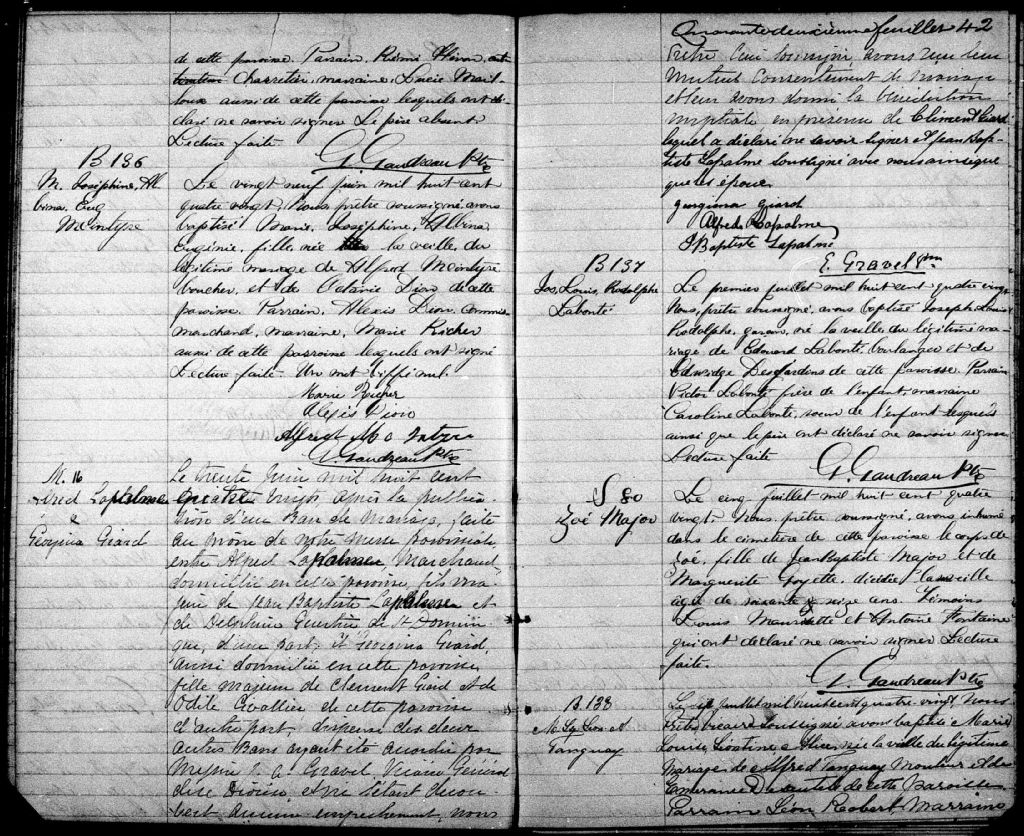 de cette paroisse. Parrain, Rémi
Charretier, marraine, Lucie Mail-
loux aussi de cette paroisse lesquels ont dé-
claré ne savoir signer. Le père absent.
Lecture faite
G. Gaudreau Ptre
B 136
M. Joséphine, Al
bina, Eug
McIntyre
Le vingt neuf juin mil huit cent
quatre vingt, Nous, prêtre soussigné, avons
baptisé Marie, Joséphine, Albina
Eugénie, fille, née la veille, du
légitime mariage de Alfred McIntyre
boucher, et de Octavie Dion de cette
paroisse. Parrain, Alexis Dion, commis
marchand, marraine, Marie Richer
aussi de cette paroisse lesquels ont signé
Lecture faite. Un mot biffé nul.
Marie Richer
Alexis Dion
Alfred Mc Intyre
G. Gaudreau Ptre
M. 16
Alfred Lapalme
&
Georgina Giard
Le trente Juin mil huit cent
quatre vingt, après la publica-
tion d'un Ban de Mariage, faite
au prône de notre messe paroissiale
entre Alfred Lapalme, Marchand,
domicilié en cette paroisse, fils ma-
jeur de Jean Baptiste Lapalme et
de Delphine Guertin de St Domini-
que, d'une part; Et Georgina Giard,
aussi domiciliée en cette paroisse,
fille majeure de Clement Giard et de
Odile Evallier de cette paroisse
d'autre part, dispense des deux
autres Bans ayant été accordée par
Messire J. A. Gravel, Vicaire Général
de ce Diocèse, et ne s'étant décou-
vert aucun empêchement, nous
Quarante deuxième feuillet 42
Prêtre Curé soussigné, avons reçu leur
mutuel consentement de mariage
et leur avons donné la bénédiction
nuptiale en présence de Clément Giard
lequel a déclaré ne savoir signer et Jean Bap-
tiste Lapalme soussigné avec nous ainsi que
que les époux.
gorgina giard
Alfred Lapalme
J Baptiste Lapalme
E. Gravel
B 137
Jos, Louis, Rodolphe
Labonté
Le premier juillet mil huit cent quatre vingt
Nous, prêtre soussigné, avons baptisé Joseph, Louis
Rodolphe, garçon, né la veille du légitime ma-
riage de Edouard Labonté, boulanger et de
Edwidge Desjardins de cette paroisse. Parrain
Victor Labonté frère de l'enfant, marraine
Caroline Labonté, soeur de l'enfant lesquels
ainsi que le père ont déclaré ne savoir signer
Lecture faite
G. Gaudreau Ptre
S 80
Zoé Major
Le cinq juillet mil huit cent quatre
vingt. Nous, prêtre soussigné, avons inhumé
dans le cimetière de cette paroisse le corps de
Zoé, fille de Jean Baptiste Major et de
Marguerite Goyette, décédée l'avant veille
agée de soixante & seize ans. Témoins
Louis et Antoine Fontaine
qui ont déclaré ne savoir signer Lecture
faite.
G. Gaudreau Ptre
B. 138
Tanguay
Le juillet mil huit cent quatre vingt Nous
Ptre vicaire soussigné avons baptisé Marie
Louise, Alice, née la veille du légitime
Mariage de Alfred Tanguay Mouleur et de
Emerance de cette Paroisse
Parrain Léon Robert, Marraine